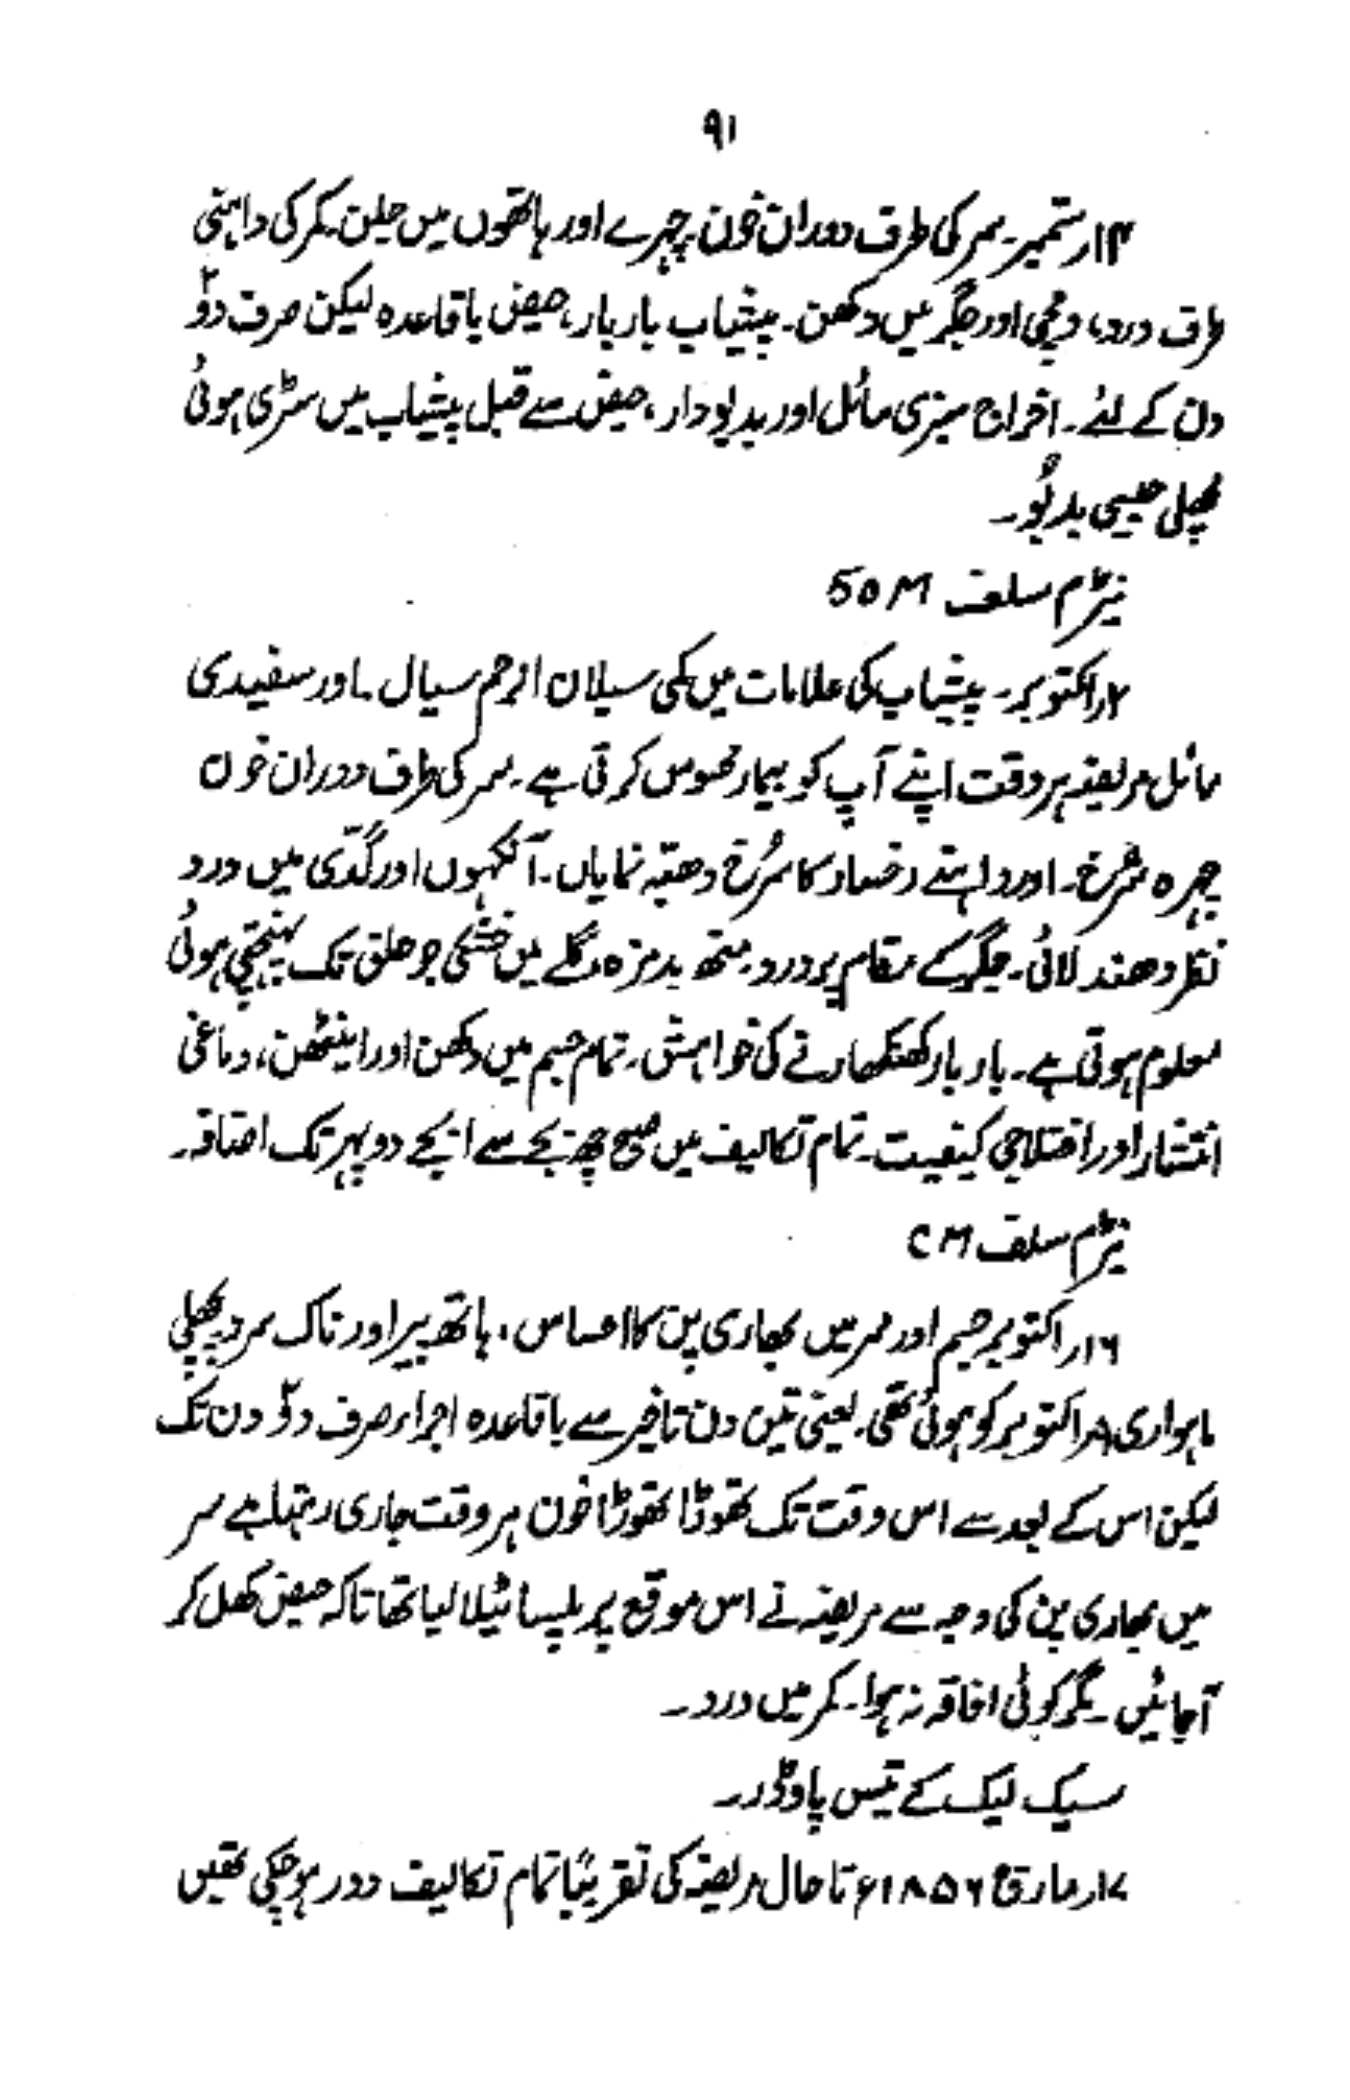 ۹۱
۱۴ر ستمبر۔ سر کی طرف دوران خون۔ چہرے اور ہاتھوں میں جلن۔ کمر کی داہنی
طرف درد، دمچی اور جگر میں دکھن۔ پیشاب بار بار، حیض باقاعدہ لیکن صرف دوؔ
دن کے لئے۔ اخراج سبزی مائل اور بدبودار، حیض سے قبل پیشاب میں سڑی ہوئی
مچھلی جیسی بدبُو۔
نیٹرم سلف 50M
۲ر اکتوبر۔ پیشاب کی علامات میں کمی سیلان الرحم سیال۔ اور سفیدی
مائل مریضہ ہر وقت اپنے آپ کو بیمار محسوس کرتی ہے۔ سر کی طرف دوران خون
چہرہ سُرخ۔ اور داہنے رخسار کا سُرخ دھبّہ نمایاں۔ آنکہوں اور گدّی میں درد
نظر دھندلائی۔ جگر کے مقام پر درد۔ منھ بدمزہ گلے میں خشکی جو حلق تک پہنچتی ہوئی
معلوم ہوتی ہے۔ بار بار کھنکھارنے کی خواہش۔ تمام جسم میں دکھن اور اینٹھن، دماغی
انتشار اور اختلاجی کیفیت۔ تمام تکالیف میں صبح چھ بجے سے ۱ بجے دوپہر تک اضافہ۔
نیٹرم سلف CM
۱۶ر اکتوبر جسم اور سر میں بھاری پن کا احساس، ہاتھ پیر اور ناک سرد۔ پچھلی
ماہواری ۸ر اکتوبر کو ہوئی تھی۔ یعنی تین دن تاخیر سے باقاعدہ اجراء صرف دوؔ دن تک
لیکن اس کے بعد سے اس وقت تک تھوڑا تھوڑا خون ہر وقت جاری رہتا ہے سر
میں بھاری پن کی وجہ سے مریضہ نے اس موقع پر پلساٹیلا لیا تھا تاکہ حیض کھل کر
آجائیں۔ مگر کوئی افاقہ نہ ہوا۔ کمر میں درد۔
سیک لیک کے تیس پاوڈر۔
۱۷ر مارچ ۱۸۵۶ء تا حال مریضہ کی تقریبًا تمام تکالیف دور ہو چکی تھیں